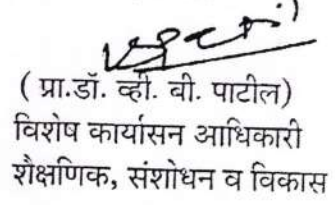 ( प्रा.डॉ. व्ही. बी. पाटील)
विशेष कार्यासन आधिकारी
शैक्षणिक, संशोधन व विकास